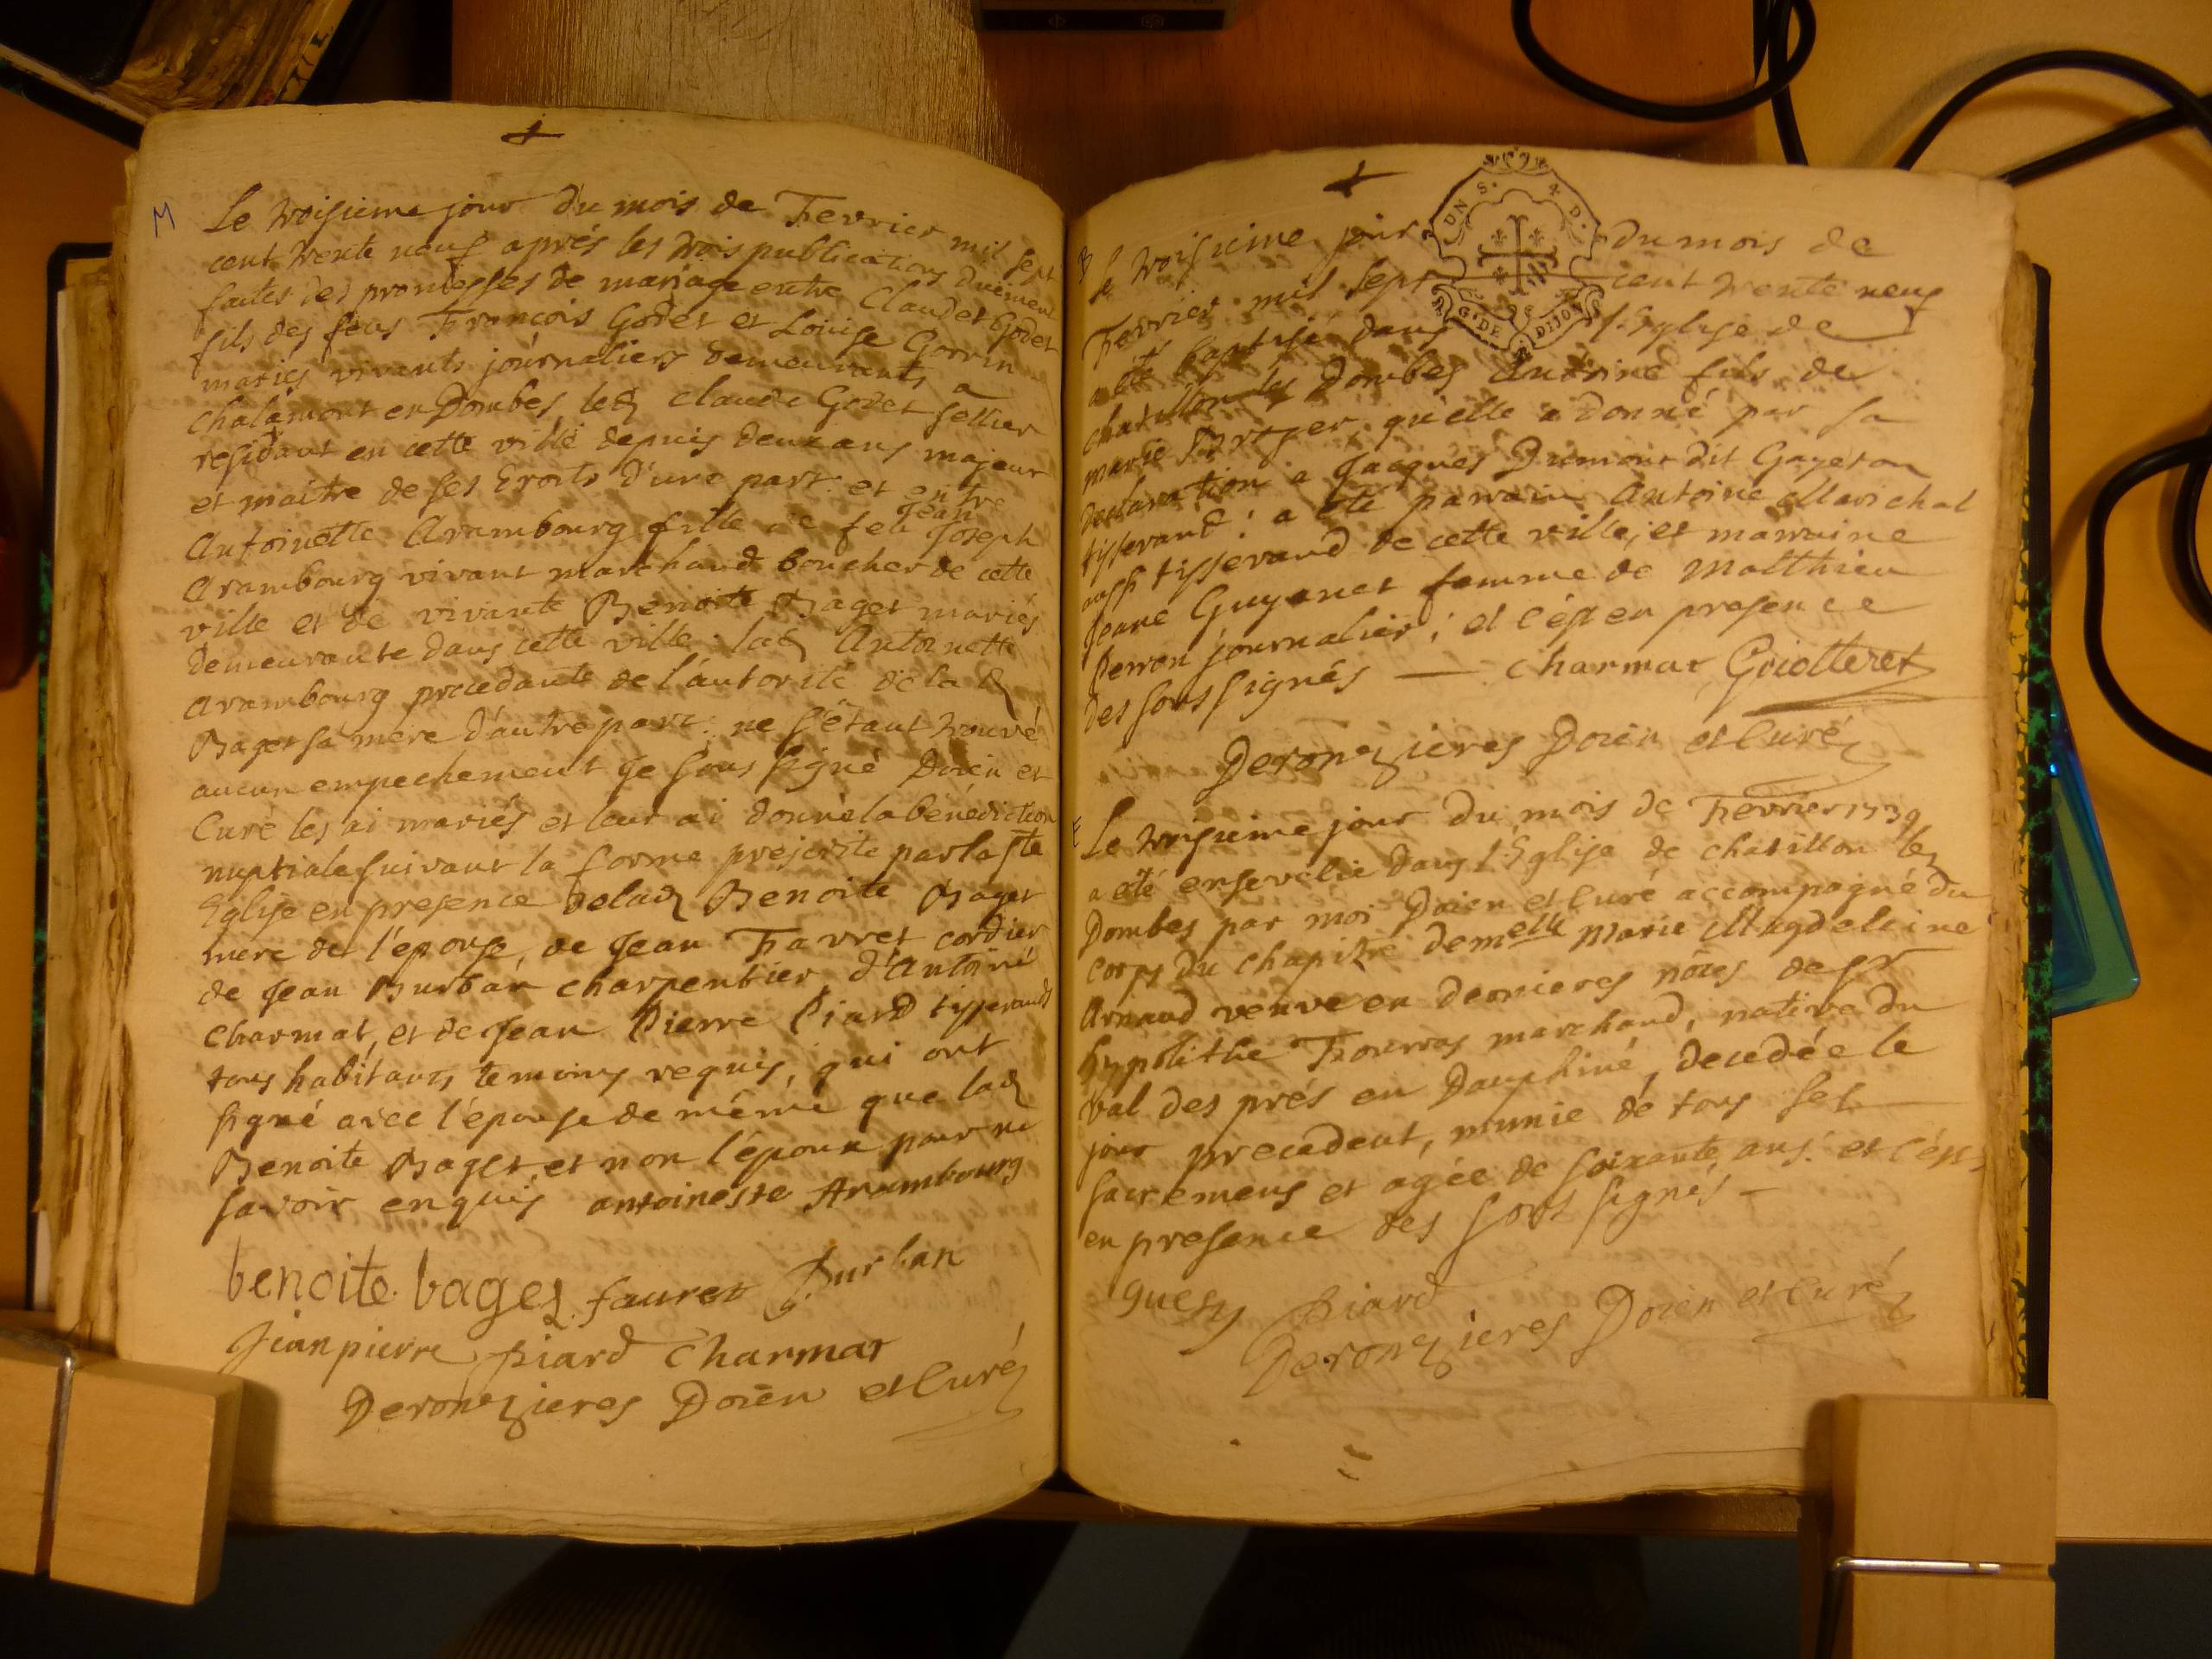 M
Le troisieme jour du mois de Fevrier mil sept
cent trente neuf aprés les trois publications duëment
faites des promesses de mariage entre Claude Godet
fils des feus François Godet et Louise Gorvin
mariés vivants journaliers demeurants a
chalamont en Dombes, led claude Godet sellier
residant en cette ville depuis deux ans majeur
et maitre de ses droits d'une part. et entre
Antoinette Arambourg fille de feu Jean Joseph
Arambourg vivant marchand boucher de cette
ville et de vivante Benoite Baget mariés
demeurante dans cette ville. lad Antoinette
Arambourg procedante de l'autorité de la d
Baget sa mere d'autre part: ne s'étant trouvé
aucun empechement Je sous signé Doien et
Curé les ai mariés et leur ai donné la bénédiction
nuptiale suivant la forme prescrite par la ste
Eglise en presence de lad Benoite Baget
mere de l'épouse, de Jean Favret cordier
de Jean Burban charpentier, d'Antoine
Charmat, et de Jean Pierre Piard tisserands
tous habitants temoins requis, qui ont
signé avec l'épouse de même que lad
Benoite Baget, et non l'époux pour ne
savoir enquis antoinette Arambourg
benoite bages fauret J. Burban
Jean pierre piard Charmat
Deronzieres Doien et Curé
B
Le troisieme jour du mois de
Fevrier mil sept cent trente neuf
a été baptisé dans l'Eglise de
chatillon les Dombes Antoine fils de
marie qu'elle a donné par sa
declaration a Jacques Dumont dit Gayeton
tisserand: a été parrain Antoine Marichal
aussi tisserand de cette ville, et marraine
Jeane Guyonet femme de Matthieu
Perron journalier; et c'ést en presence
des sous signés — Charmat Griotteret
Deronzieres Doien et Curé
E
Le troisieme jour du mois de Fevrier 1739
a été ensevelie dans l'Eglise de chatillon les
Dombes par moi Doien et Curé accompagné du
corps du chapitre demelle Marie Magdeleine
Arnaud veuve en dernieres nôces de sr
hypolithe Fourras marchand, native du
Val des prés en Dauphiné, decedée le
jour precedent, munie de tous ses
sacremens et agée de soixante ans: et c'ést
en presence des sous signés —
guesy Piard
Deronzieres Doien et Curé